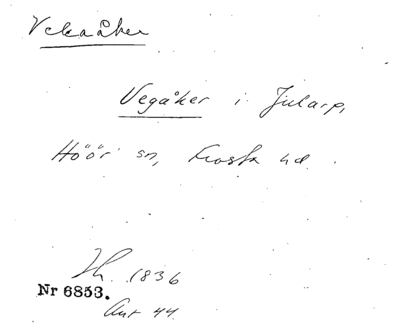 Vekaåker
Vegåker i Jularp,
Höör sn, Frosta hd.
1836
Nr 6853.
44